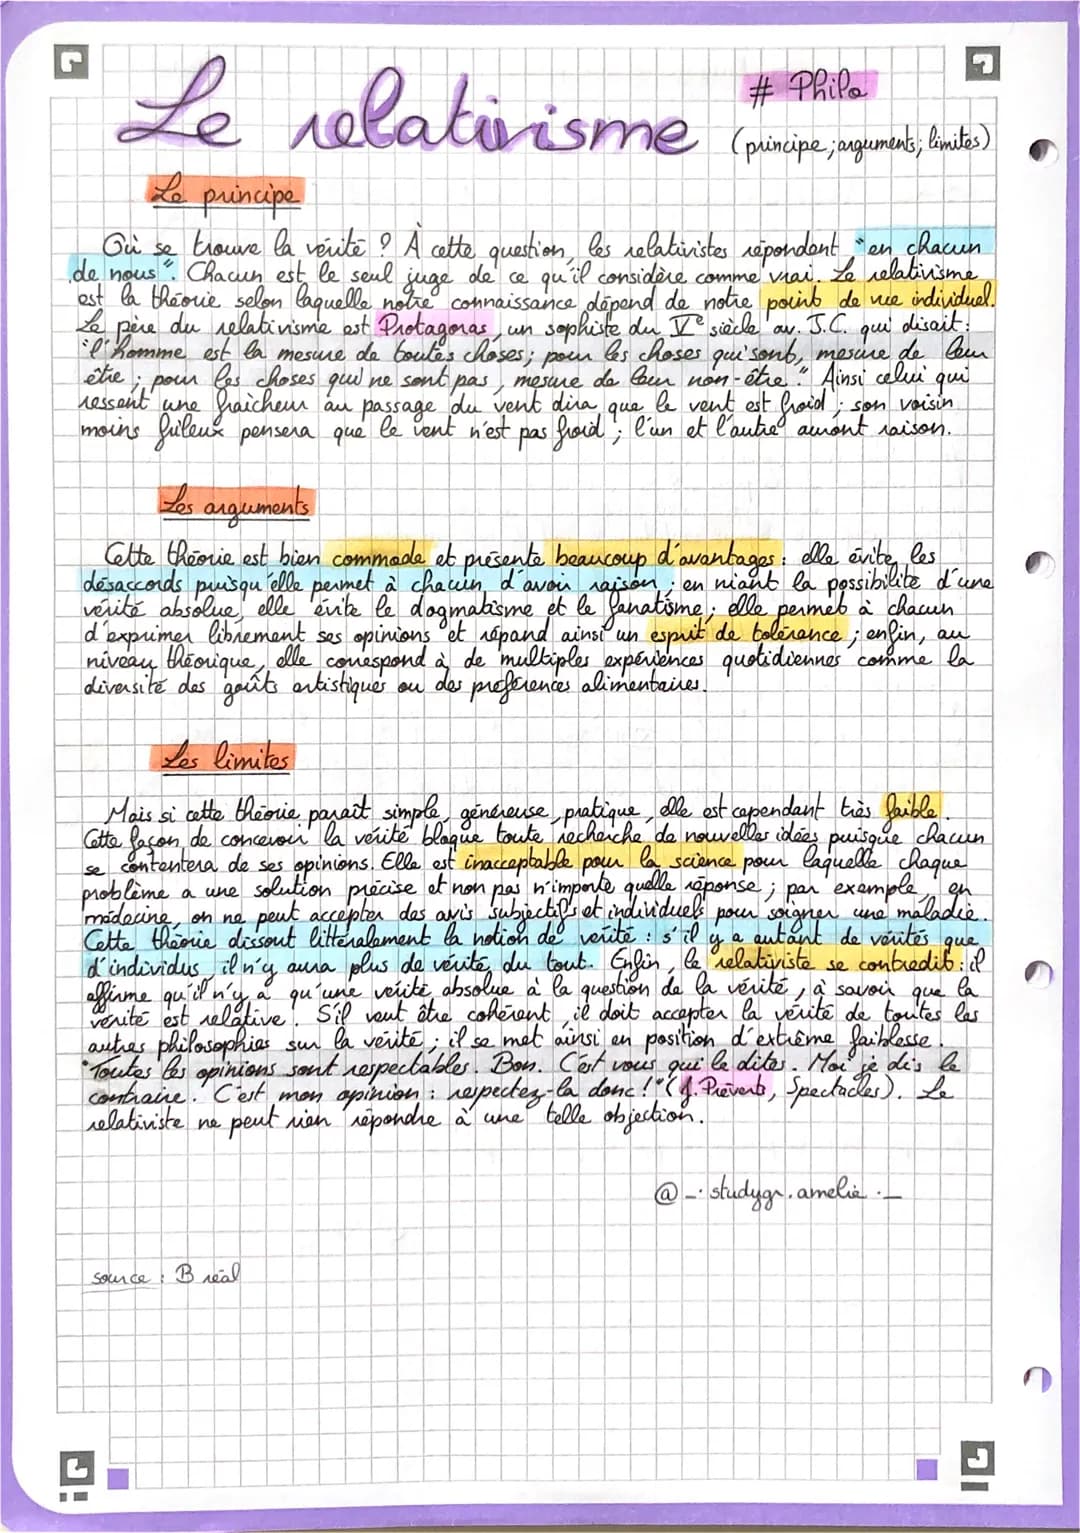 Le relativisme
# Philo
(principe; arguments; limites)
Le principe
Où se trouve la vérité ? À cette question, les relativistes répondent "en chacun
de nous". Chacun est le seul juge de ce qu'il considère comme vrai. Le relativisme
est la théorie selon laquelle notre connaissance dépend de notre point de vue individuel.
Le père du relativisme est Protagoras, un sophiste du Ve siècle av. J.C. qui disait :
"l'homme est la mesure de toutes choses; pour les choses qui sont, mesure de leur
être ; pour les choses qui ne sont pas, mesure de leur non-être." Ainsi celui qui
ressent une fraicheur au passage du vent dira que le vent est froid ; son voisin
moins frileux pensera que le vent n'est pas froid ; l'un et l'autre auront raison.
Les arguments
Cette théorie est bien commode et présente beaucoup d'avantages : elle évite les
désaccords puisqu'elle permet à chacun d'avoir raison ; en niant la possibilité d'une
vérité absolue, elle évite le dogmatisme et le fanatisme ; elle permet à chacun
d'exprimer librement ses opinions et répand ainsi un esprit de tolérance ; enfin, au
niveau théorique, elle correspond à de multiples expériences quotidiennes comme la
diversité des goûts artistiques ou des préférences alimentaires.
Les limites
Mais si cette théorie parait simple, généreuse, pratique, elle est cependant très faible.
Cette façon de concevoir la vérité bloque toute recherche de nouvelles idées puisque chacun
se contentera de ses opinions. Elle est inacceptable pour la science pour laquelle chaque
problème a une solution précise et non pas n'importe quelle réponse ; par exemple, en
médecine, on ne peut accepter des avis subjectifs et individuels pour soigner une maladie.
Cette théorie dissout littéralement la notion de vérité : s'il y a autant de vérités que
d'individus, il n'y aura plus de vérité du tout. Enfin, le relativiste se contredit : il
affirme qu'il n'y a qu'une vérité absolue à la question de la vérité, à savoir que la
vérité est relative. S'il veut être cohérent, il doit accepter la vérité de toutes les
autres philosophies sur la vérité ; il se met ainsi en position d'extrême faiblesse.
"Toutes les opinions sont respectables. Bon. C'est vous qui le dites. Moi je dis le
contraire. C'est mon opinion : respectez-la donc !" (J. Préverts, Spectacles). Le
relativiste ne peut rien répondre à une telle objection.
@_. studygr.amelie ._
source : B réal